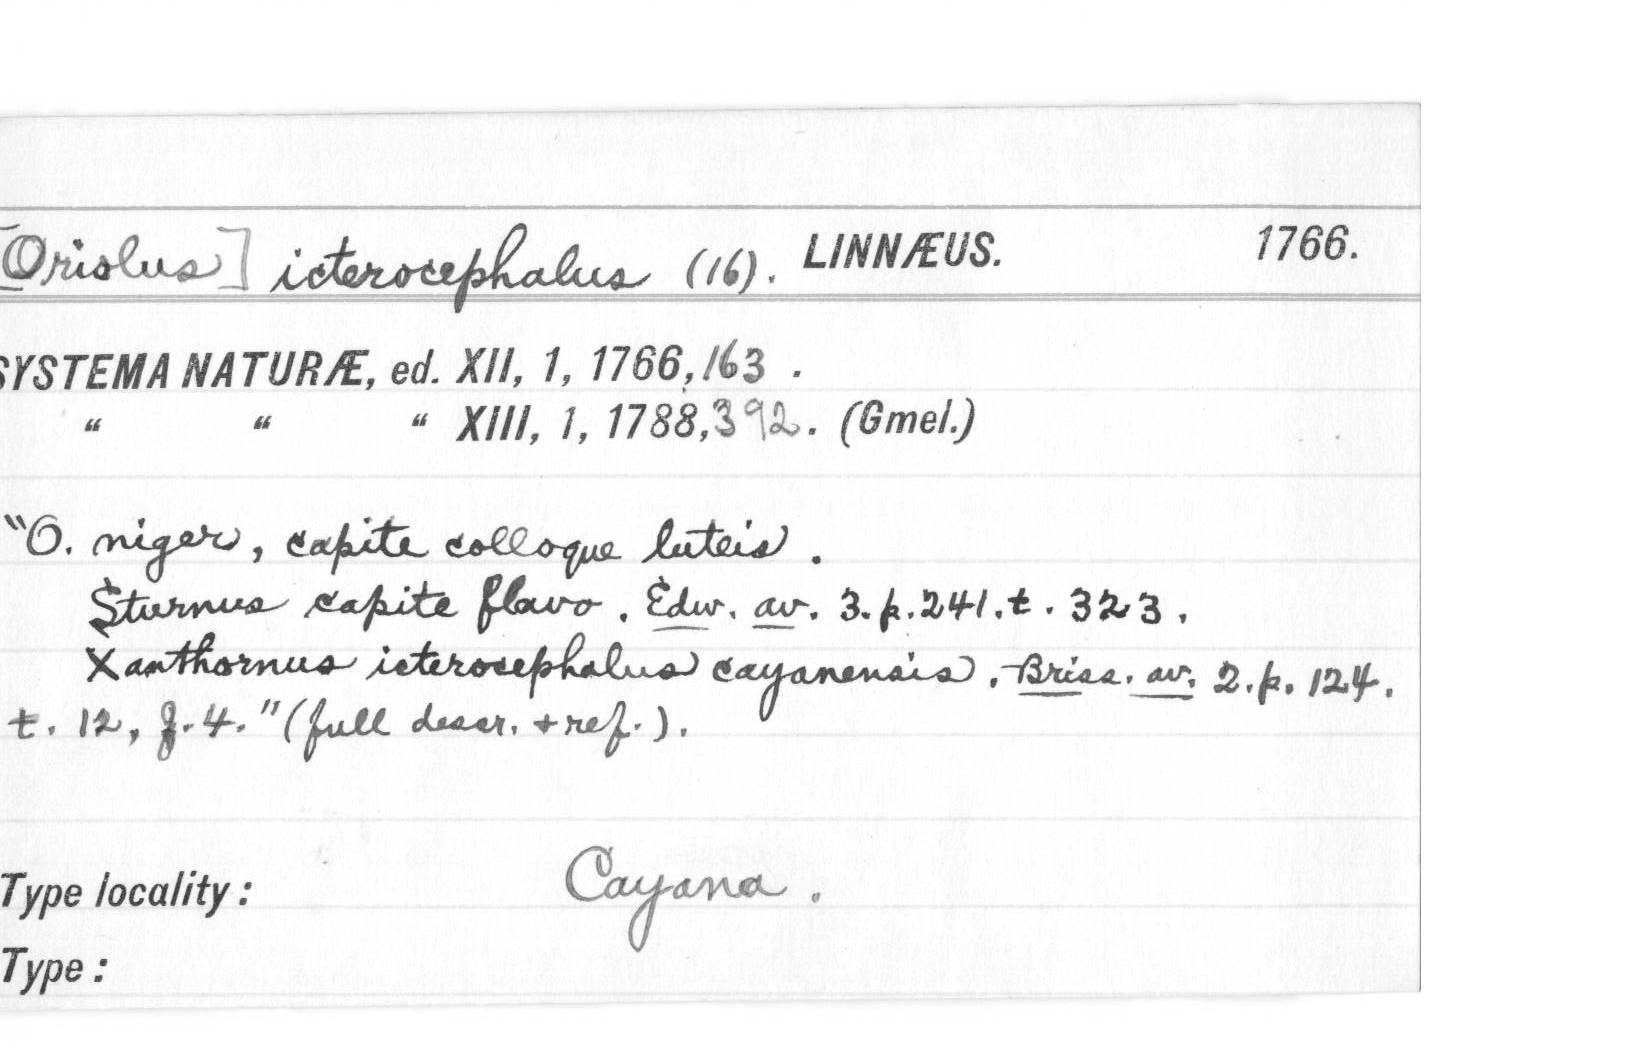 [Oriolus] icterocephalus (16). LINNÆUS. 1766.
SYSTEMA NATURÆ, ed. XII, 1, 1766, 163 .
“ “ “ XIII, 1, 1788, 392. (Gmel.)
"O. niger, capite colloque luteis .
Sturnus capite flavo . Edw. av. 3. p. 241. t. 323.
Xanthornus icterocephalus cayanensis. Briss. av. 2. p. 124.
t. 12, f. 4." (full descr. + ref.).
Type locality : Cayana .
Type :